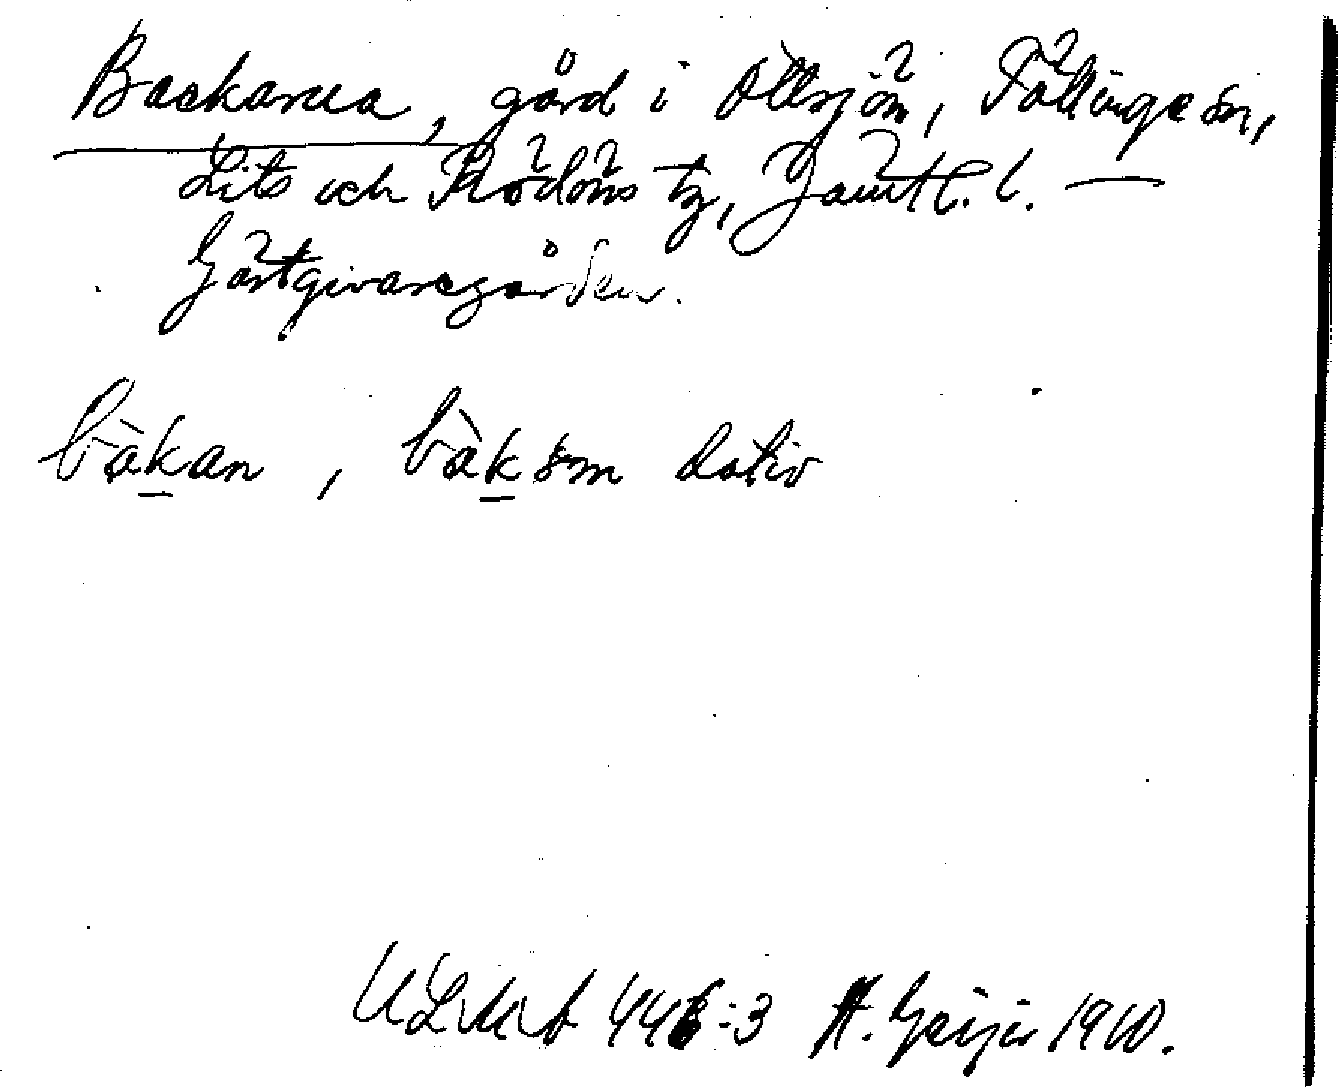 Backarna, gård i Ollsjön, Föllinge sn,
Lits och Rödöns tg, Jämtl. l. —
Gästgivaregården.
bàkan, bàksm dativ
ULMA 446:3 H. Geijer 1910.